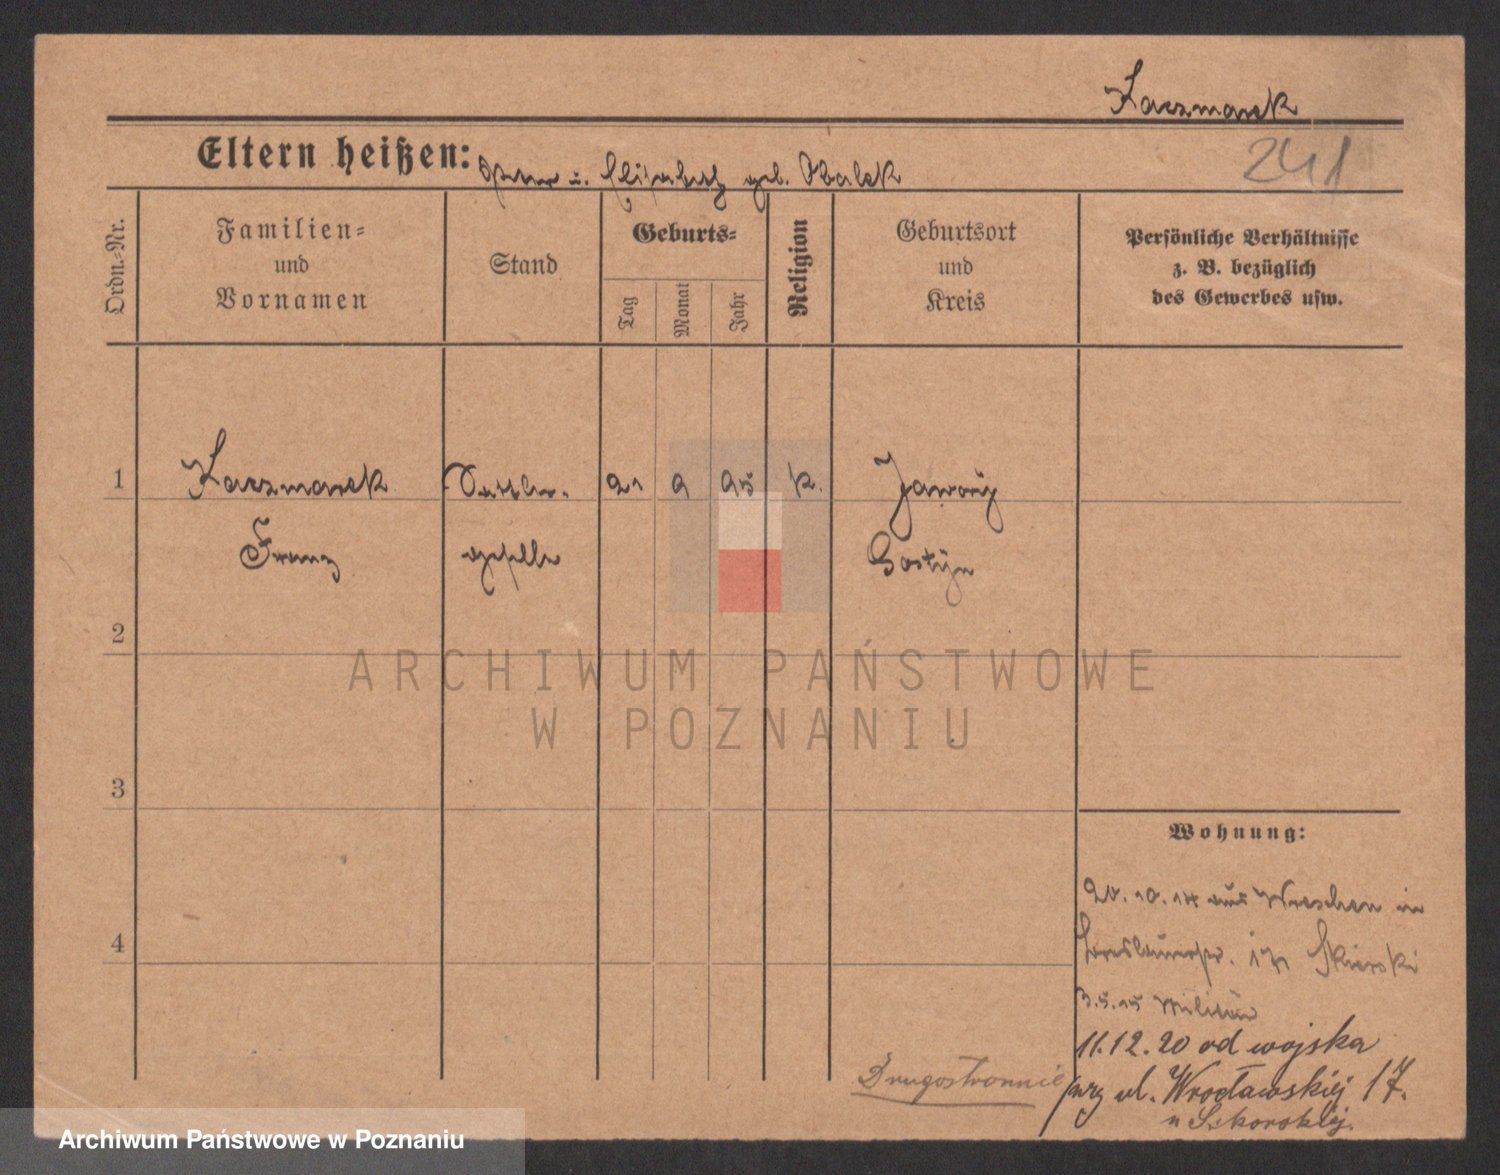 Kaczmarek
241
Eltern heißen: Peter u. Elisabeth geb. Obalek
Ordn.-Nr.
Familien-
und
Vornamen
Stand
Geburts-
Tag
Monat
Jahr
Religion
Geburtsort
und
Kreis
Persönliche Verhältnisse
z. B. bezüglich
des Gewerbes usw.
1
Kaczmarek Sattler- 21 9 95 k.
Franz geselle Gostyn
2
3
4
Wohnung:
20.10.14 aus Wreschen in
Breslauerstr. 17 Skierski
3.5.15 Militär
11.12.20 od wojska
przy ul. Wrocławskiej 17.
u Sikorskiej.
Drugostronnie
ARCHIWUM PAŃSTWOWE
W POZNANIU
Archiwum Państwowe w Poznaniu